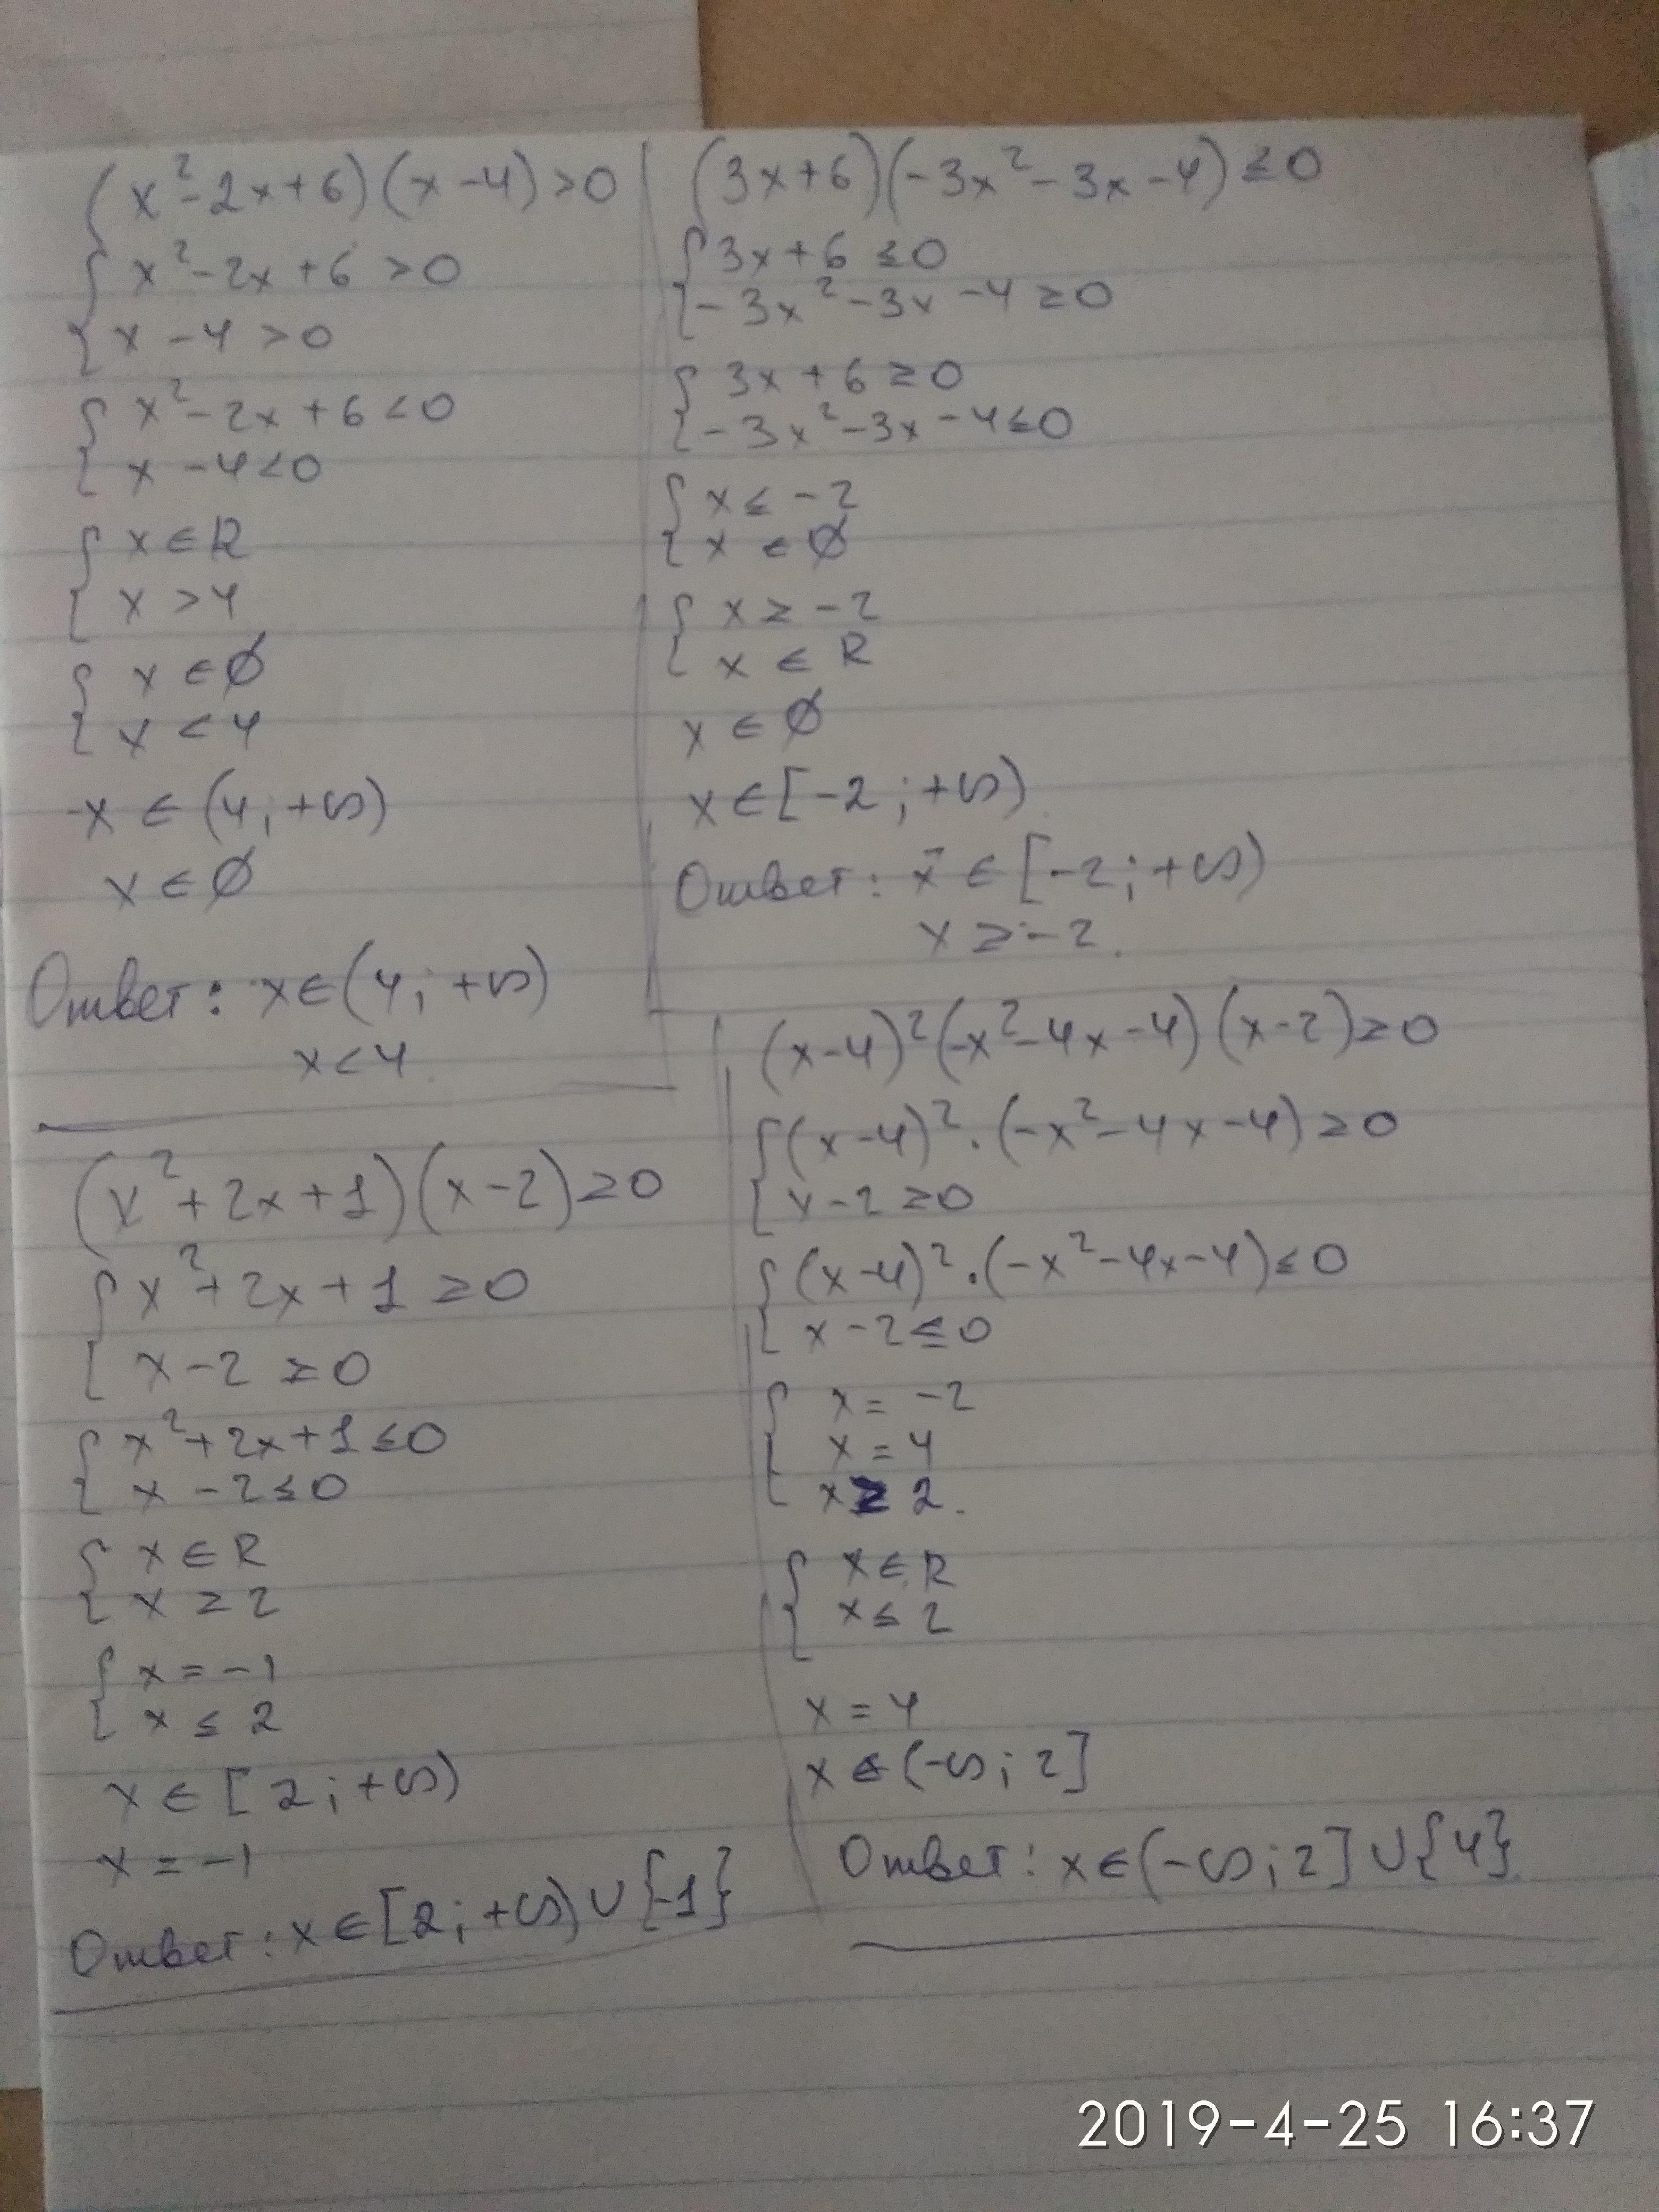 (x²-2x+6)(x-4)>0
{x²-2x+6>0
{x-4>0
{x²-2x+6<0
{x-4<0
{x∈R
{x>4
{x∈∅
{x<4
x∈(4;+∞)
x∈∅
Ответ: x∈(4;+∞)
x<4.
(3x+6)(-3x²-3x-4)≤0
{3x+6≤0
{-3x²-3x-4≥0
{3x+6≥0
{-3x²-3x-4≤0
{x≤-2
{x∈∅
{x≥-2
{x∈R
x∈∅
x∈[-2;+∞)
Ответ: x∈[-2;+∞)
x≥-2.
(x²+2x+1)(x-2)≥0
{x²+2x+1≥0
{x-2≥0
{x²+2x+1≤0
{x-2≤0
{x∈R
{x≥2
{x=-1
{x≤2
x∈[2;+∞)
x=-1
Ответ: x∈[2;+∞)∪{-1}
(x-4)²(-x²-4x-4)(x-2)≥0
{(x-4)²·(-x²-4x-4)≥0
{x-2≥0
{(x-4)²·(-x²-4x-4)≤0
{x-2≤0
{x=-2
{x=4
{x≥2.
{x∈R
{x≤2
x=4
x∈(-∞;2]
Ответ: x∈(-∞;2]∪{4}.
2019-4-25 16:37